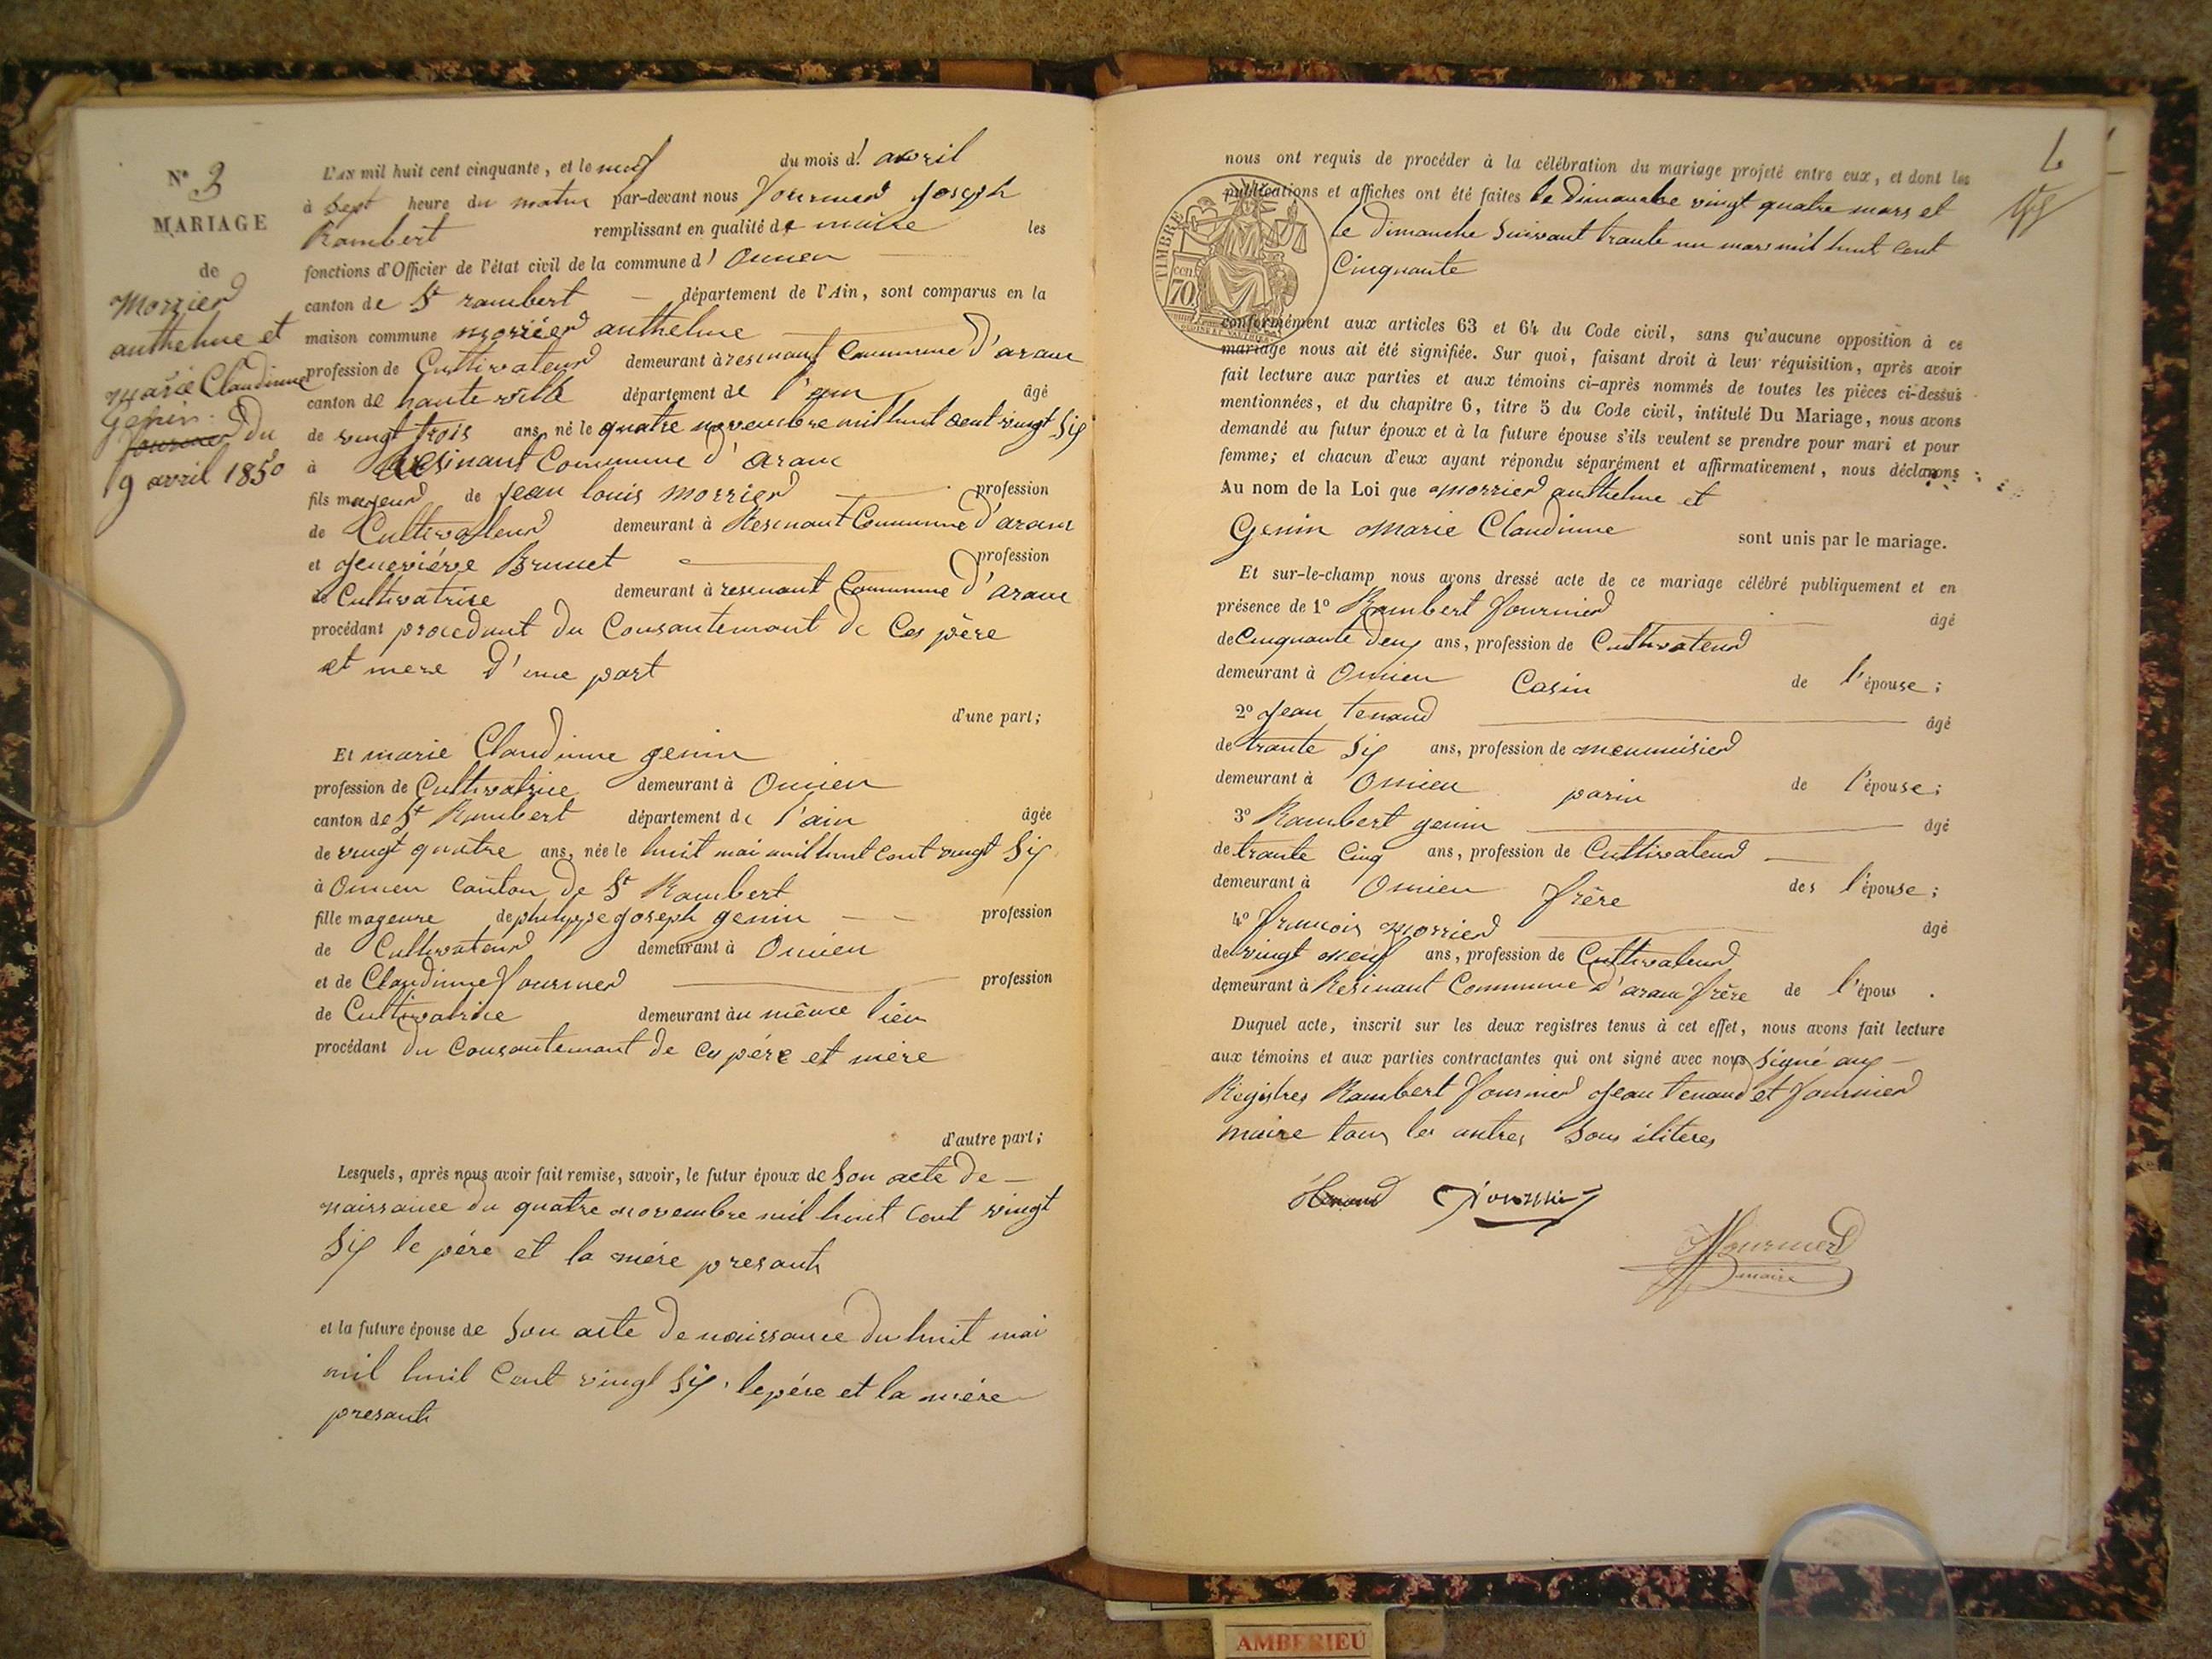 N° 3
MARIAGE
de
Morrier
anthelme et
Marie Claudinne
genin
fournier du
9 avril 1850
L'AN mil huit cent cinquante, et le neuf du mois d' avril
à Sept heure du matin par-devant nous fournier Joseph
Rambert remplissant en qualité de maire les
fonctions d'Officier de l'état civil de la commune d' Oncieu
canton de St rambert département de l'Ain, sont comparus en la
maison commune morrier anthelme
profession de Cultivateur demeurant à resinant Commune d'aranc
canton de haute ville département de l'ain âgé
de vingt trois ans, né le quatre novembre mil huit cent vingt Six
à Resinant Commune d'aranc
fils majeur de Jean louis morrier profession
de Cultivateur demeurant à Resinant Commune d'aranc
et geneviéve Brunet profession
de Cultivatrise demeurant à resinant Commune d'aranc
procédant procedant du Consantemant de Ces père
et mere d'une part
d'une part;
Et marie Claudinne genin
profession de Cultivatrice demeurant à Oncieu
canton de St Rambert département de l'ain âgée
de vingt quatre ans, née le huit mai mil huit cent vingt Six
à Oncieu canton de St Rambert
fille mageure de philippe Joseph genin profession
de Cultivateur demeurant à Oncieu
et de Claudinne fournier profession
de Cultivatrice demeurant au même lieu
procédant du Consantemant de Ces pére et mère
d'autre part;
Lesquels, après nous avoir fait remise, savoir, le futur époux de Son acte de
naissance du quatre novembre mil huit cent vingt
Six le pére et la mére presants
et la future épouse de Son acte de naissance du huit mai
mil huit Cent vingt Six le pére et la mére
presants
nous ont requis de procéder à la célébration du mariage projeté entre eux, et dont les
publications et affiches ont été faites le Dimanche vingt quatre mars et
le Dimanche Suivant trante un mars mil huit cent
Cinquante
TIMBRE
cen
70
conformément aux articles 63 et 64 du Code civil, sans qu'aucune opposition à ce
mariage nous ait été signifiée. Sur quoi, faisant droit à leur réquisition, après avoir
fait lecture aux parties et aux témoins ci-après nommés de toutes les pièces ci-dessus
mentionnées, et du chapitre 6, titre 5 du Code civil, intitulé Du Mariage, nous avons
demandé au futur époux et à la future épouse s'ils veulent se prendre pour mari et pour
femme; et chacun d'eux ayant répondu séparément et affirmativement, nous déclarons
Au nom de la Loi que morrier anthelme et
Genin Marie Claudinne sont unis par le mariage.
Et sur-le-champ nous avons dressé acte de ce mariage célébré publiquement et en
présence de 1° Rambert fournier âgé
de Cinquante deux ans, profession de Cultivateur
demeurant à Oncieu Casin de l'épouse;
2° Jean tenand âgé
de trante Six ans, profession de menuisier
demeurant à Oncieu parin de l'épouse;
3° Rambert genin âgé
de trante Cinq ans, profession de Cultivateur
demeurant à Oncieu frère des l'épouse;
4° francois morrier âgé
de vingt neuf ans, profession de Cultivateur
demeurant à Resinant Commune d'aranc frère de l'épous.
Duquel acte, inscrit sur les deux registres tenus à cet effet, nous avons fait lecture
aux témoins et aux parties contractantes qui ont signé avec nous Signé aux
Registres Rambert fournier Jean tenand et fournier
maire tous les autres Sons iliteres
tenand fournier
fournier
maire
AMBERIEU